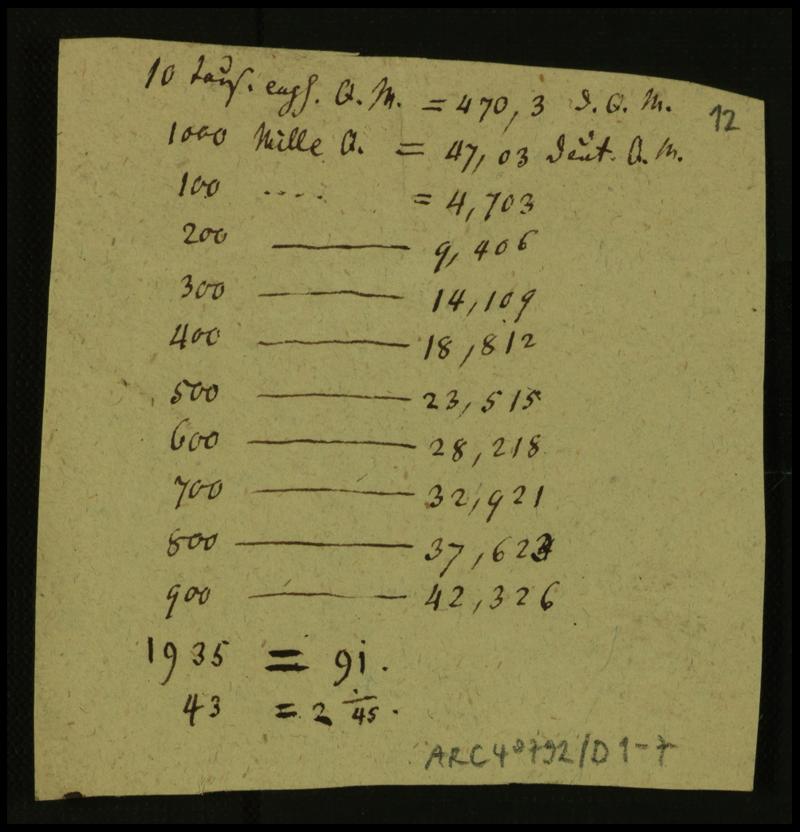 10 Tauß. engl. Q. M. = 470,3 d. Q. M.
12
1000 Mille Q. = 47,03 Deut. Q. M.
100 .... = 4,703
200 ——— 9,406
300 ——— 14,109
400 ——— 18,812
500 ——— 23,515
600 ——— 28,218
700 ——— 32,921
800 ——— 37,623
900 ——— 42,326
1935 = 91.
43 = 2 1/45.
ARC 4° 792/D 1-7